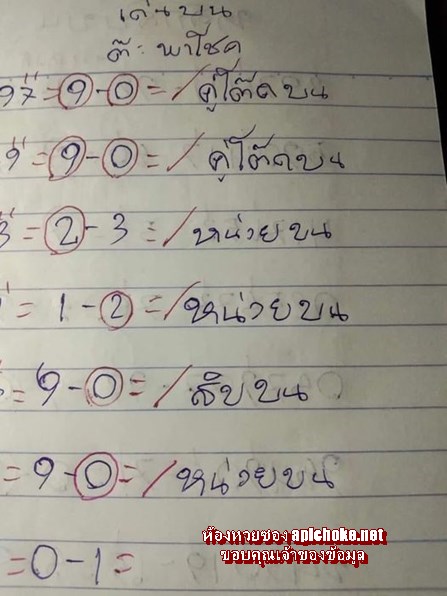 เด่นบน
ต๊ะ พาโชค
97" = 9 - 0 = / คู่โต๊ดบน
9" = 9 - 0 = / คู่โต๊ดบน
3" = 2 - 3 = / หน่วยบน
= 1 - 2 = / หน่วยบน
= 9 - 0 = / สิบบน
= 9 - 0 = / หน่วยบน
= 0 - 1 =
ห้องหวยซอง apichoke.net
ขอบคุณเจ้าของข้อมูล